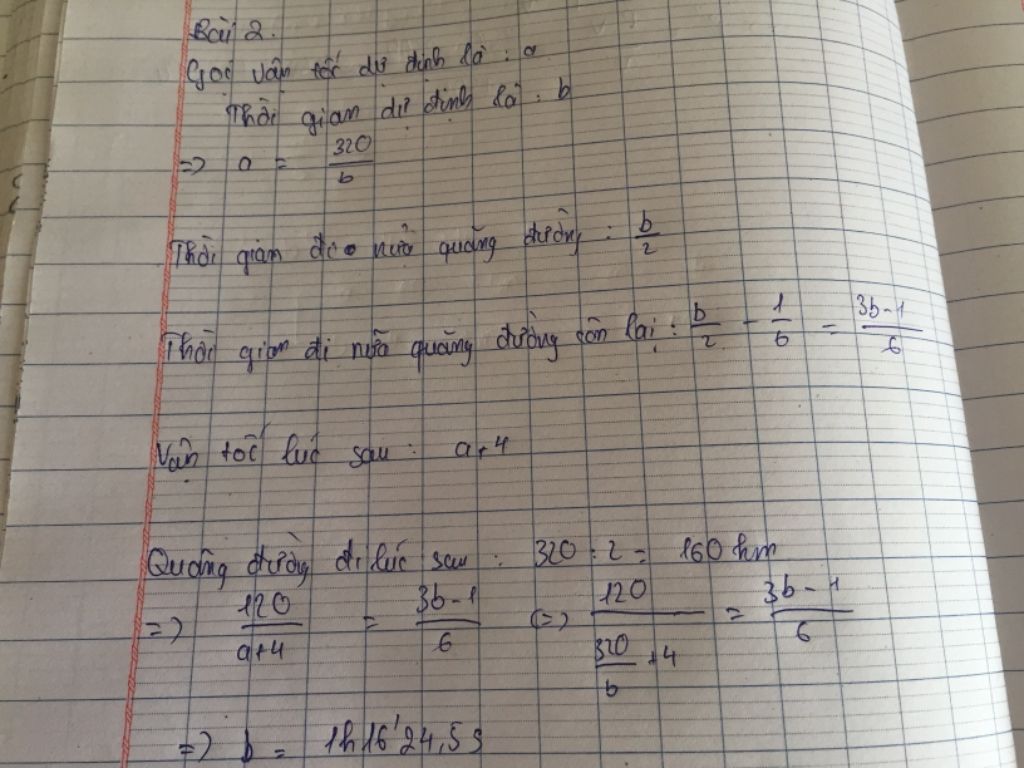 Bài 2.
Gọi vận tốc dự định là : a
Thời gian dự định là : b
=> a = 320/b
Thời gian đi nửa quãng đường : b/2
Thời gian đi nửa quãng đường còn lại : b/2 - 1/6 = 3b-1/6
Vận tốc lúc sau : a+4
Quãng đường đi lúc sau : 320 : 2 = 160 km
=> 120/a+4 = 3b-1/6 (=) 120/320/b+4 = 3b-1/6
=> b = 1h16'24,5s